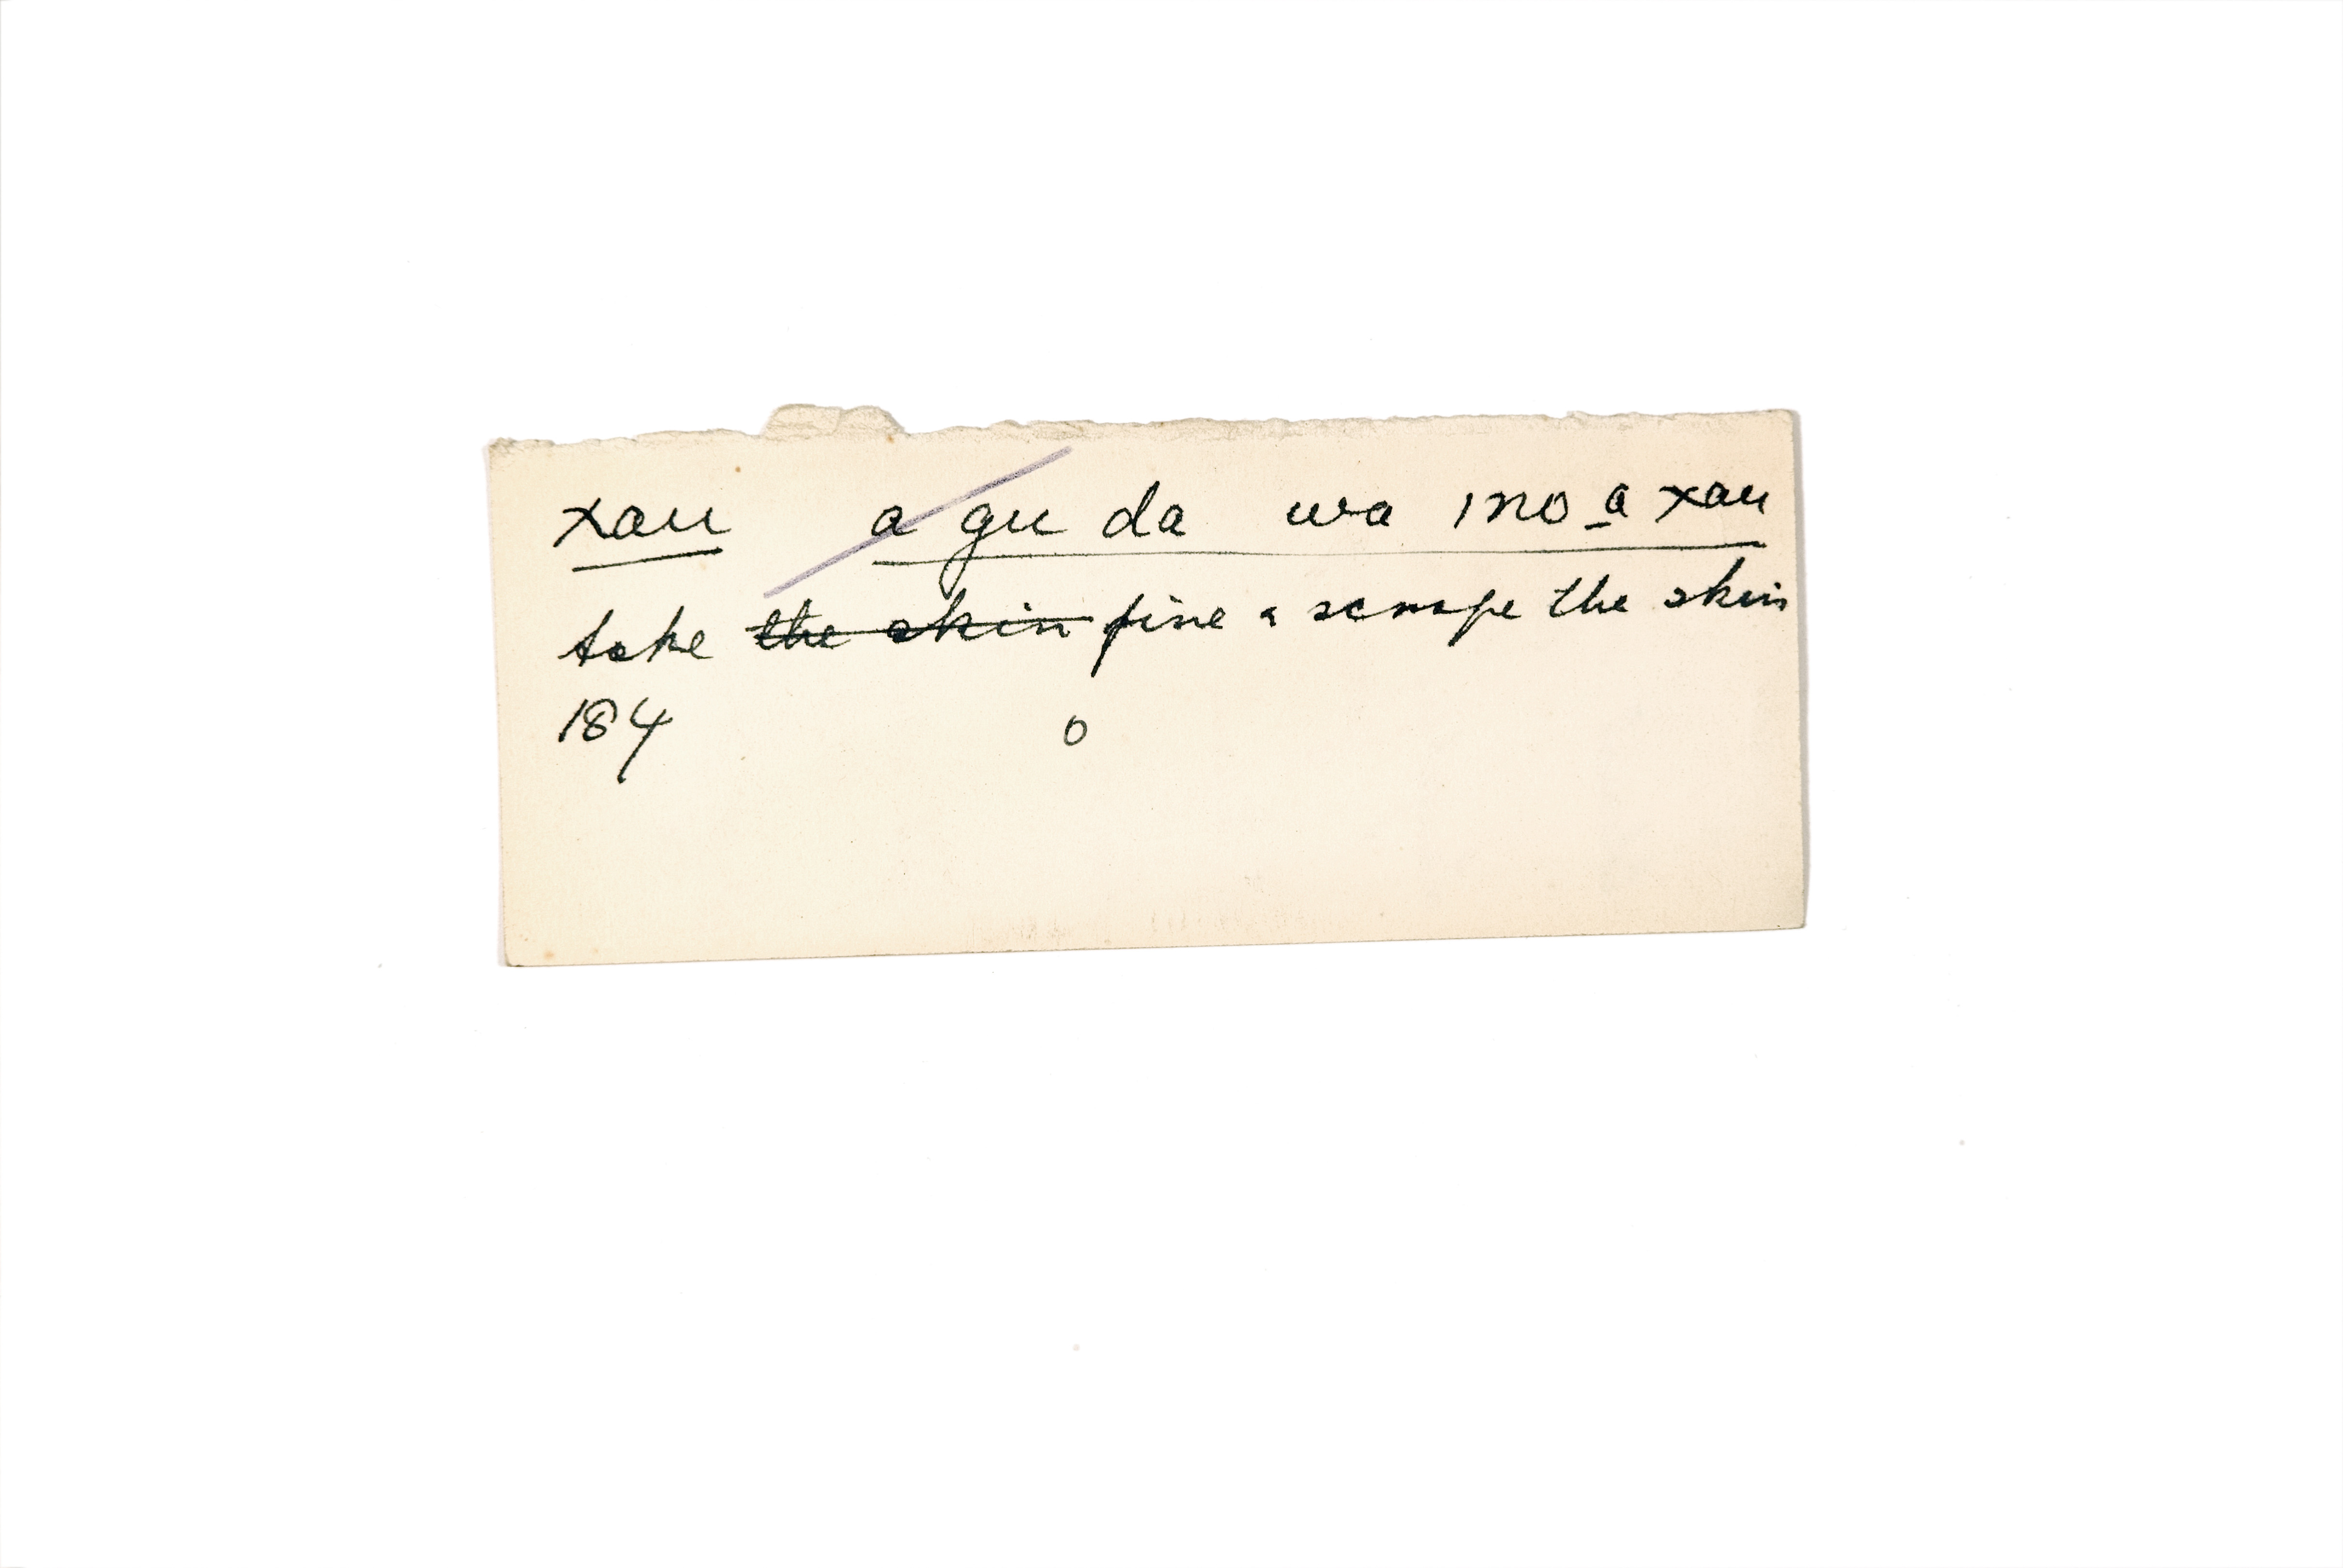 xau a gu da wa ino a xau
take the skin fine & scrape the skin
184 0